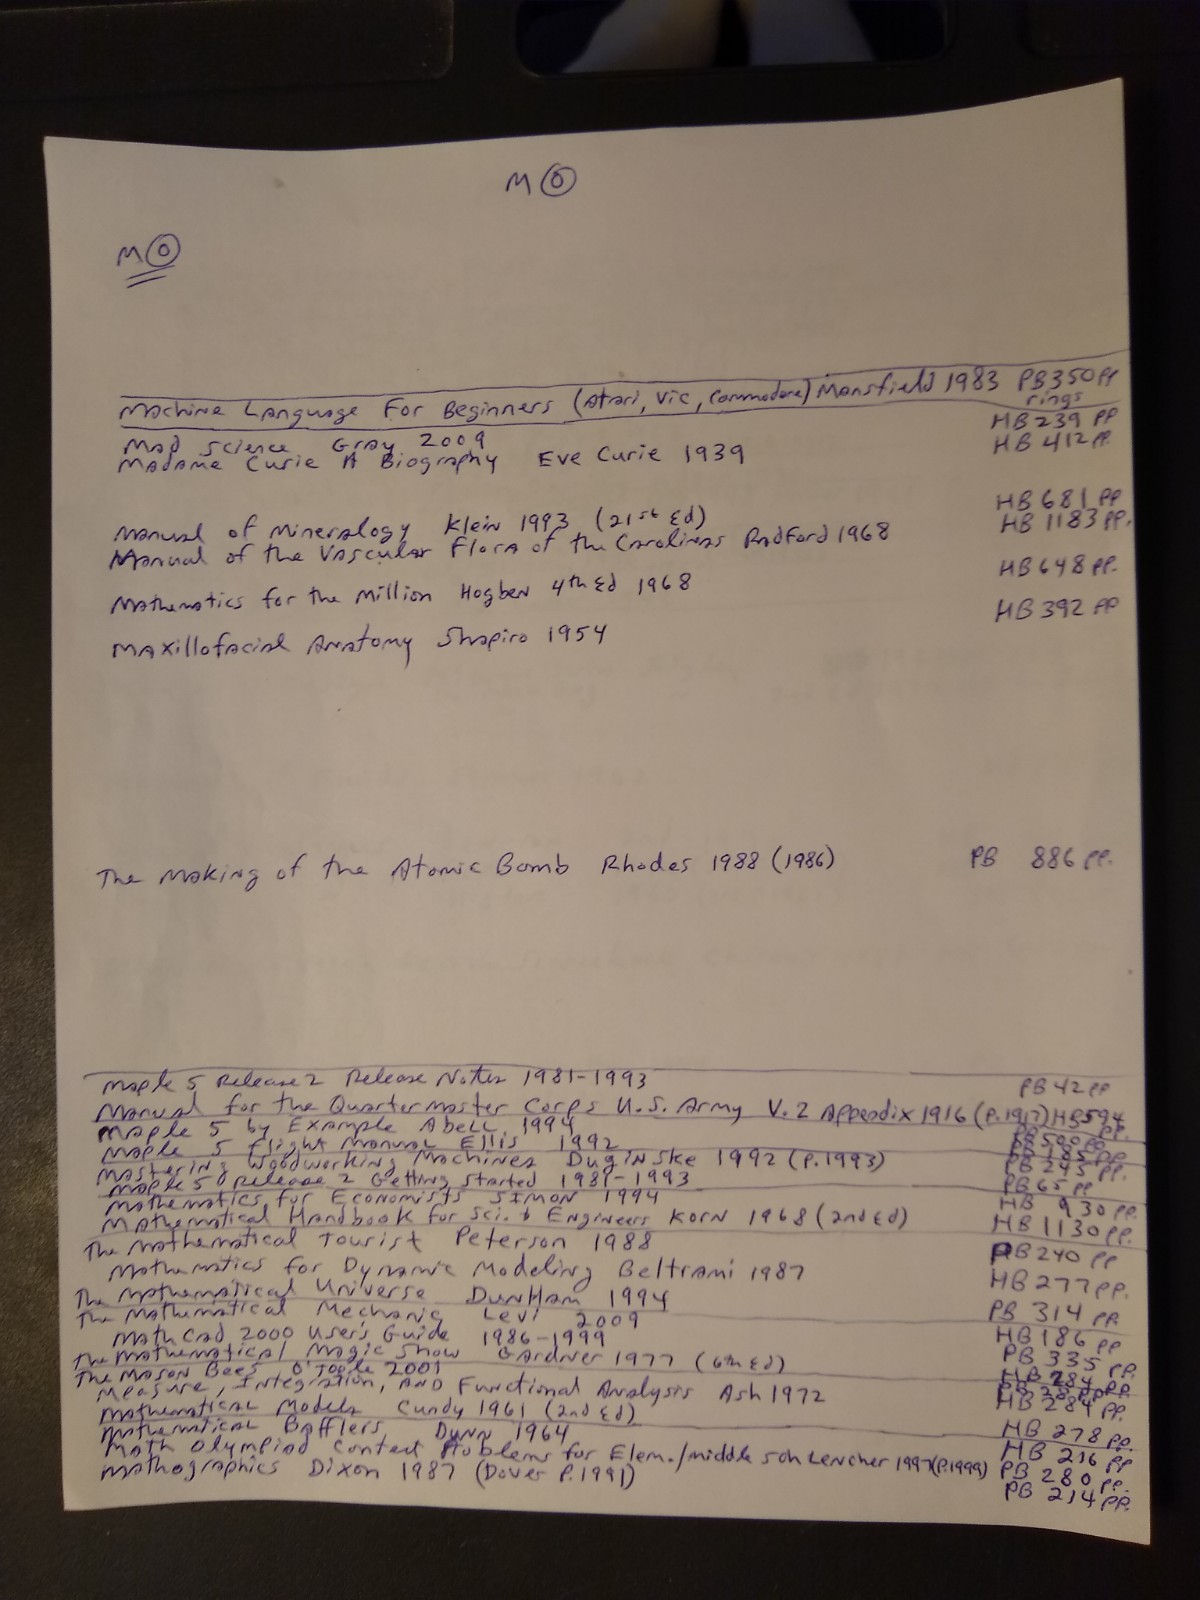 M O
M O
Machine Language For Beginners (Atari, Vic, Commodore) Mansfield 1983 PB 350 pp
rings
Mad Science Gray 2009 HB 239 pp
Madame Curie A Biography Eve Curie 1939 HB 412 pp.
Manual of Mineralogy Klein 1993 (21st Ed) HB 681 pp
Manual of the Vascular Flora of the Carolinas Radford 1968 HB 1183 pp.
Mathematics for the Million Hogben 4th Ed 1968 HB 648 pp.
Maxillofacial Anatomy Shapiro 1954 HB 392 pp
The Making of the Atomic Bomb Rhodes 1988 (1986) PB 886 pp.
Maple 5 Release 2 Release Notes 1981-1993 PB 42 pp
Manual for the Quartermaster Corps U.S. Army V. 2 Appendix 1916 (P. 1917) HB 594 pp.
Maple 5 by Example Abell 1994 PB 500 pp
Maple 5 Flight Manual Ellis 1992 PB 185 pp
Mastering Woodworking Machines Duginske 1992 (P. 1993) PB 243 pp.
Maple 5 Release 2 Getting Started 1981-1993 PB 65 pp
Mathematics for Economists Simon 1994 HB 930 pp.
Mathematical Handbook for Sci. & Engineers Korn 1968 (2nd Ed) HB 1130 pp.
The Mathematical Tourist Peterson 1988 PB 240 pp
Mathematics for Dynamic Modeling Beltrami 1987 HB 277 pp.
The Mathematical Universe Dunham 1994 PB 314 pp.
The Mathematical Mechanic Levi 2009 HB 186 pp
MathCad 2000 User's Guide 1986-1999 PB 335 pp.
The Mathematical Magic Show Gardner 1977 (6th Ed) HB 284 pp.
The Mason Bees O'Toole 2001 PB pp.
Measure, Integration, and Functional Analysis Ash 1972 HB 284 pp.
Mathematical Models Cundy 1961 (2nd Ed)
Mathematical Bafflers Dunn 1964 HB 278 pp.
Math Olympiad Contest Problems for Elem./middle sch Lenchner 1997 (P. 1999) HB 216 pp
Mathographics Dixon 1987 (Dover P. 1991) PB 280 pp.
PB 214 pp.